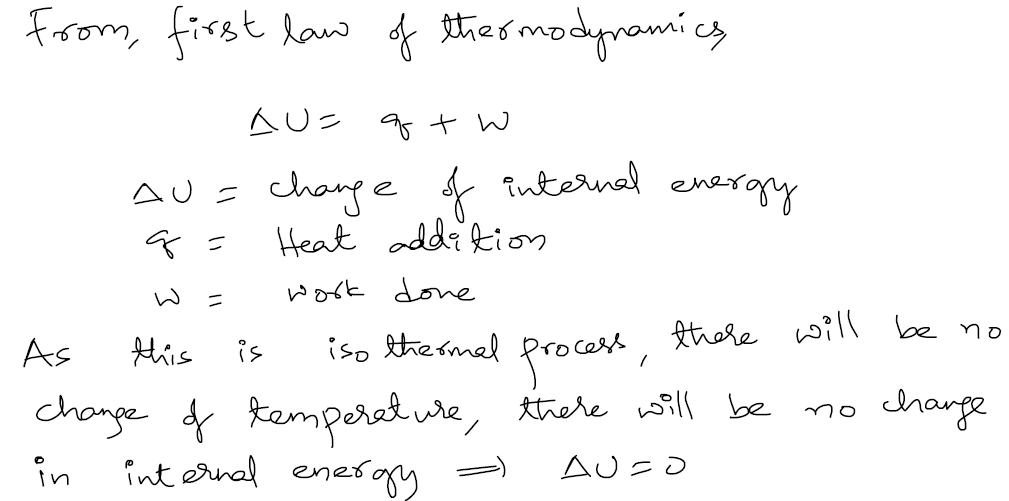 From, first law of thermodynamics,
ΔU = q + w
ΔU = change of internal energy
q = Heat addition
w = work done
As this is isothermal process, there will be no
change of temperature, there will be no change
in internal energy ⇒ ΔU = 0